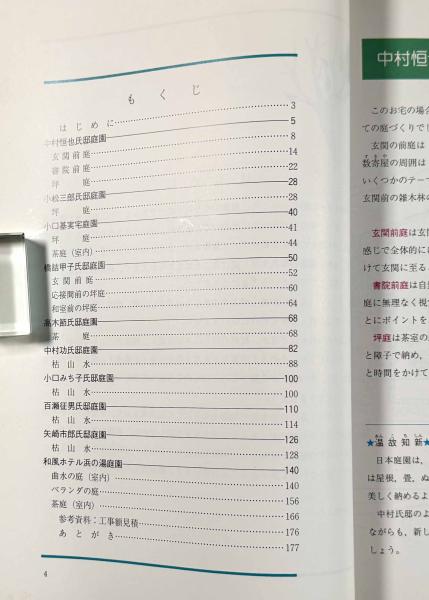 もくじ
はじめに 3
中村恒也氏邸庭園 5
玄関前庭 8
書院前庭 14
坪庭 22
小松三郎氏邸庭園 28
坪庭 28
小口基実宅庭園 40
坪庭 41
茶庭（室内） 44
橋詰甲子氏邸庭園 50
玄関前庭 52
応接間前の坪庭 60
和室前の坪庭 64
高木節氏邸庭園 68
茶庭 68
中村功氏邸庭園 82
枯山水 88
小口みち子氏邸庭園 100
枯山水 100
百瀬征男氏邸庭園 110
枯山水 114
矢崎市郎氏邸庭園 126
枯山水 128
和風ホテル浜の湯庭園 140
曲水の庭（室内） 140
ベランダの庭 156
茶庭（室内） 166
参考資料：工事額見積 176
あとがき 177
4
中村恒
このお宅の場合
ての庭づくりで
玄関の前庭は
数寄屋の周囲は
いくつかのテー
玄関前の雑木林の
玄関前庭は玄関
感じで全体的に
けて玄関に至る
書院前庭は自
庭に無理なく視
とにポイントを
坪庭は茶室の
と障子で納め、
と時間をかけて
★温故知新★
日本庭園は、
は屋根，畳，ぬ
美しく納めるよ
中村氏邸のよ
ながらも、新し
しょう。